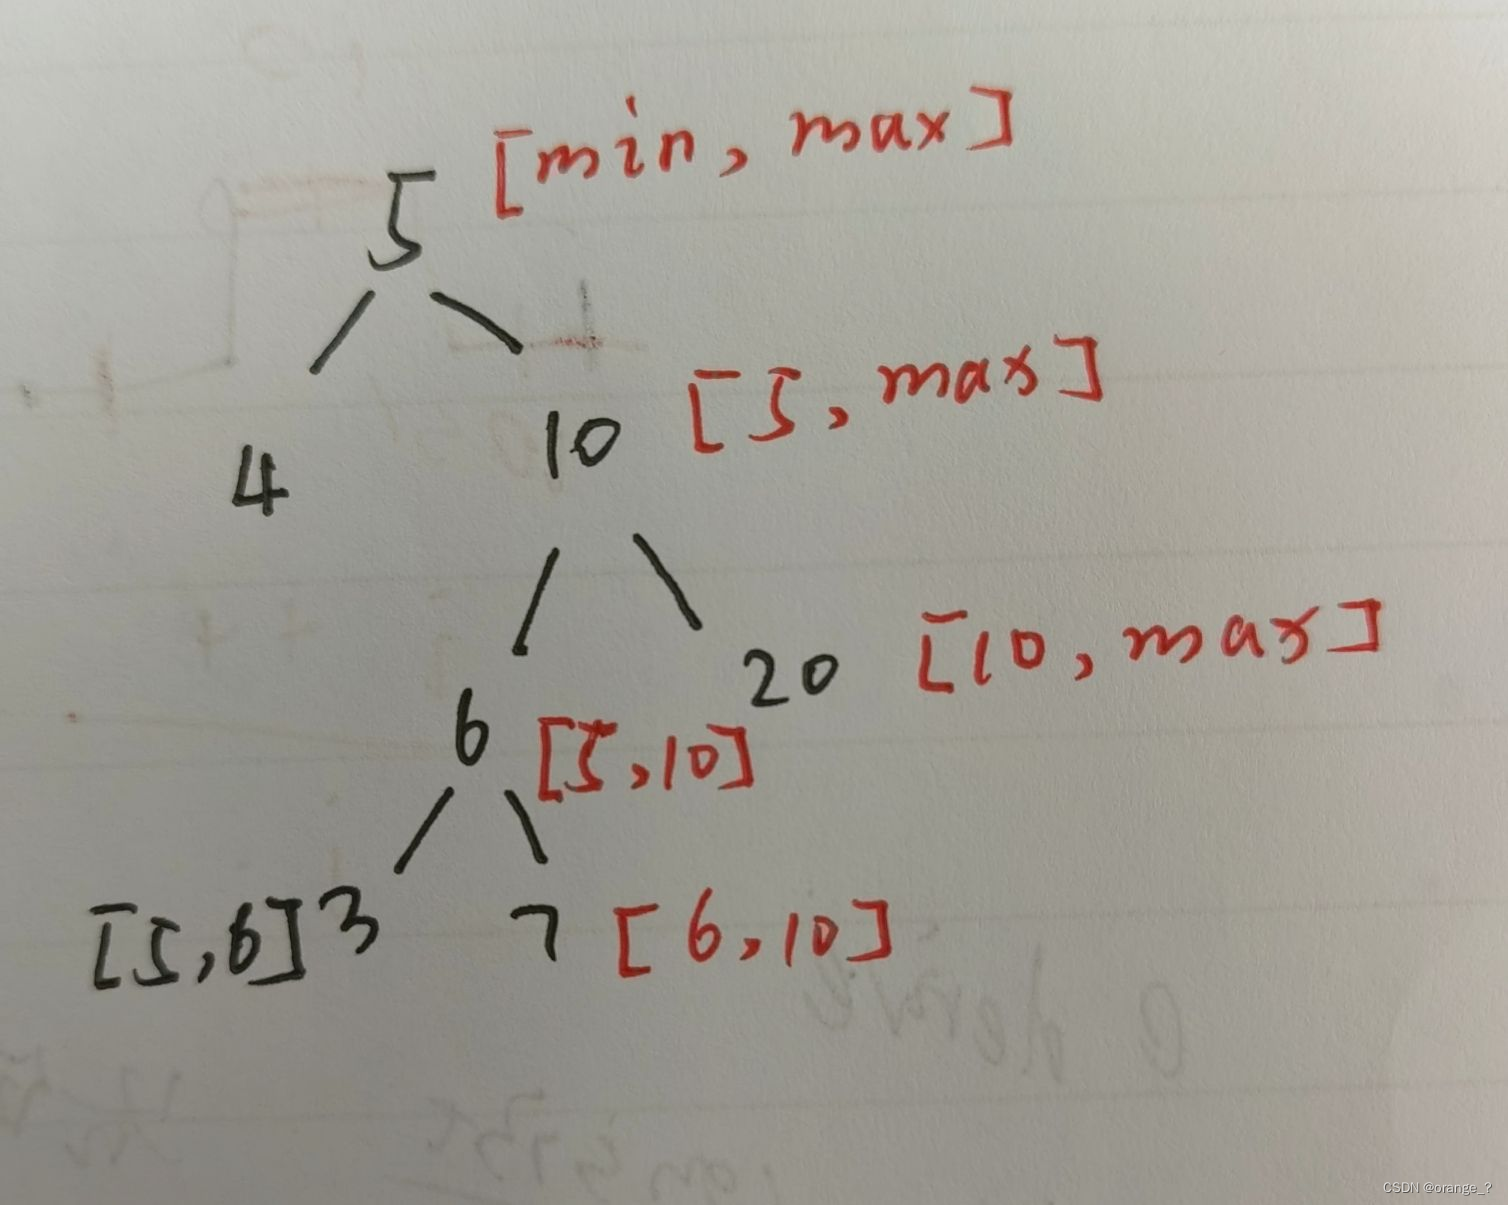 5 [min, max]
4 10 [5, max]
20 [10, max]
6 [5,10]
[5,6] 3 7 [6,10]
CSDN @orange_?